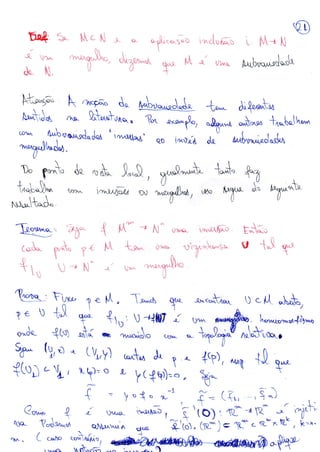 21
Def Se M ⊂ N e a aplicação inclusão i M → N
é um mergulho, dizemos que M é uma subvariedade
de N.
Atenção A noção de subvariedade tem diferentes
sentidos na literatura. Por exemplo, alguns autores trabalham
com subvariedades "imersas" ao invés de subvariedades
mergulhadas.
Do ponto de vista local, geralmente tanto faz
trabalhar com imersões ou mergulhos, isso segue do seguinte
resultado.
Teorema: Seja f M^m → N^n uma imersão. Então
cada ponto p ∈ M tem uma vizinhança U tal que
f|_U U → N^n é um mergulho.
Prova: Fixe p ∈ M. Temos que encontrar U ⊂ M aberto,
p ∈ U tal que f|_U : U → f(U) é um homeomorfismo
onde f(U) está munido com a topologia relativa.
Sejam (U_1, x) e (V_1, y) cartas de p e f(p), resp tal que
f(U_1) ⊂ V_1, x(p)=0 e y(f(p))=0. Seja
f̃ = y∘f∘x^-1 f̃ = (f̃_1, ..., f̃_n)
Como f é uma imersão, f̃'(0): ℝ^m → ℝ^n é injeti-
va Podemos assumir que f̃'(0).(ℝ^m) = ℝ^m ⊂ ℝ^m × ℝ^k, k=n-
m. (caso contrário, aplique
uma